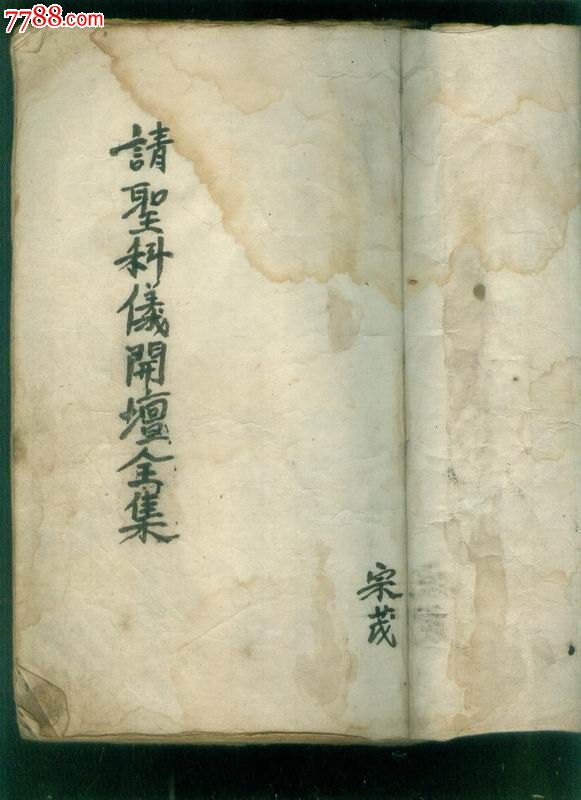 7788.com
請聖科儀開壇全集
宗茂